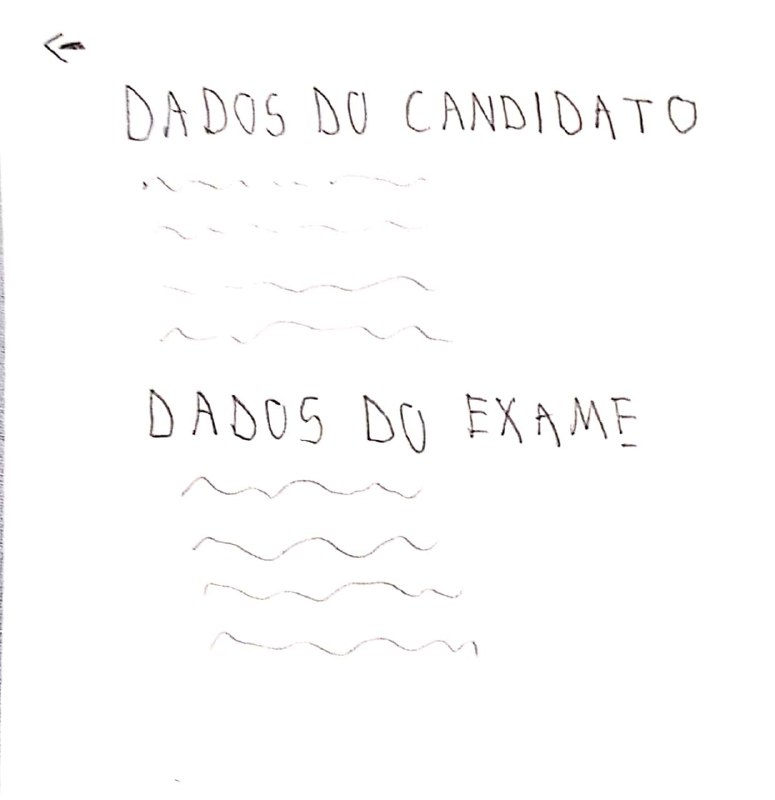 DADOS DO CANDIDATO
DADOS DO EXAME